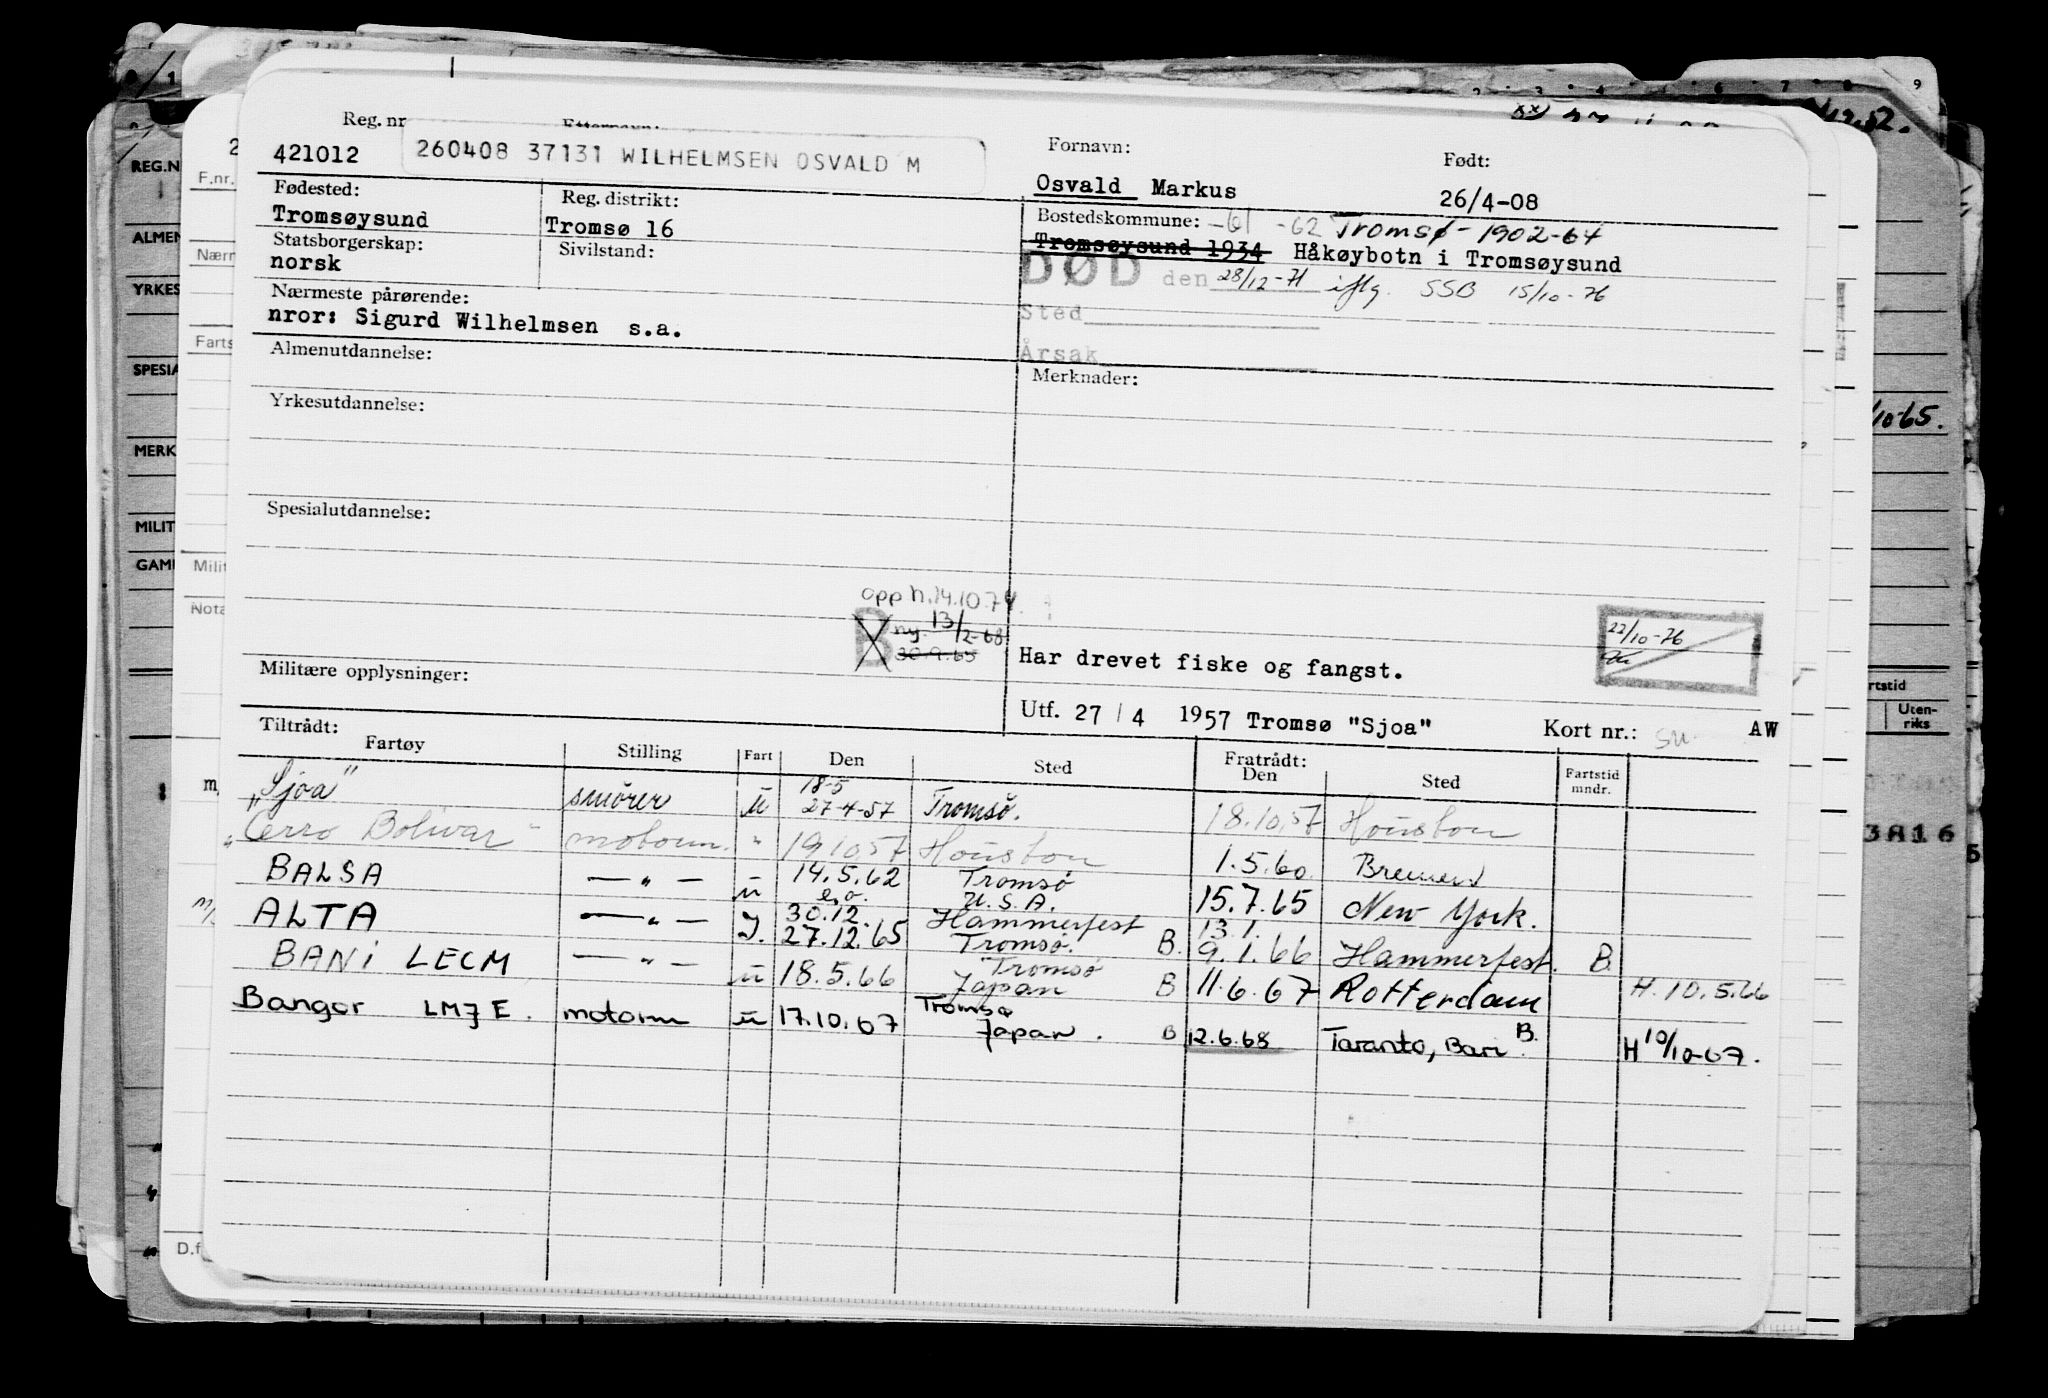 Reg. nr
421012
260408 37131 WILHELMSEN OSVALD M
Fornavn:
Født:
Osvald Markus
26/4-08
Fødested:
Tromsøysund
Reg. distrikt:
Tromsø 16
Bostedskommune: -61 -62 Tromsø - 1902-64
Tromsøysund 1934 Håkøybotn i Tromsøysund
Statsborgerskap:
norsk
Sivilstand:
DØD den 28/12-71 iflg. SSB 15/10-76
Sted
Årsak
Nærmeste pårørende:
nror: Sigurd Wilhelmsen s.a.
Almenutdannelse:
Merknader:
Yrkesutdannelse:
Spesialutdannelse:
opph. 14.10.74
B ny. 13/2-68
30.9.65
22/10-76
Har drevet fiske og fangst.
Militære opplysninger:
Utf. 27/4 1957 Tromsø "Sjoa" Kort nr.: AW
Tiltrådt:
Fartøy Stilling Fart Den Sted Fratrådt: Den Sted Fartstid mndr.
"Sjoa" smører u 18-5 27-4-57 Tromsø. 18.10.57 Houston
"Cerro Bolivar" motorm. " 19.10.57 Houston 1.5.60 Bremen
BALSA — " — u 14.5.62 e.o. Tromsø U.S.A. 15.7.65 New York.
ALTA — " — I. 30.12. 27.12.65 Hammerfest Tromsø. B. 13.1. 9.1.66 Hammerfest. B.
BANI LECM — " — u 18.5.66 Tromsø Japan B 11.6.67 Rotterdam H. 10.5.66
Bangor LMJE. motorm u 17.10.67 Tromsø Japan. B 12.6.68 Taranto, Bari B. H 10/10-67.
REG.N
F.nr.
ALMEN
Nærn
YRKES
Farts
SPESIA
MERK
MILIT
GAM
Milit
Nota
D.f
/10-65.
rtstid
Uten-
riks
3A16